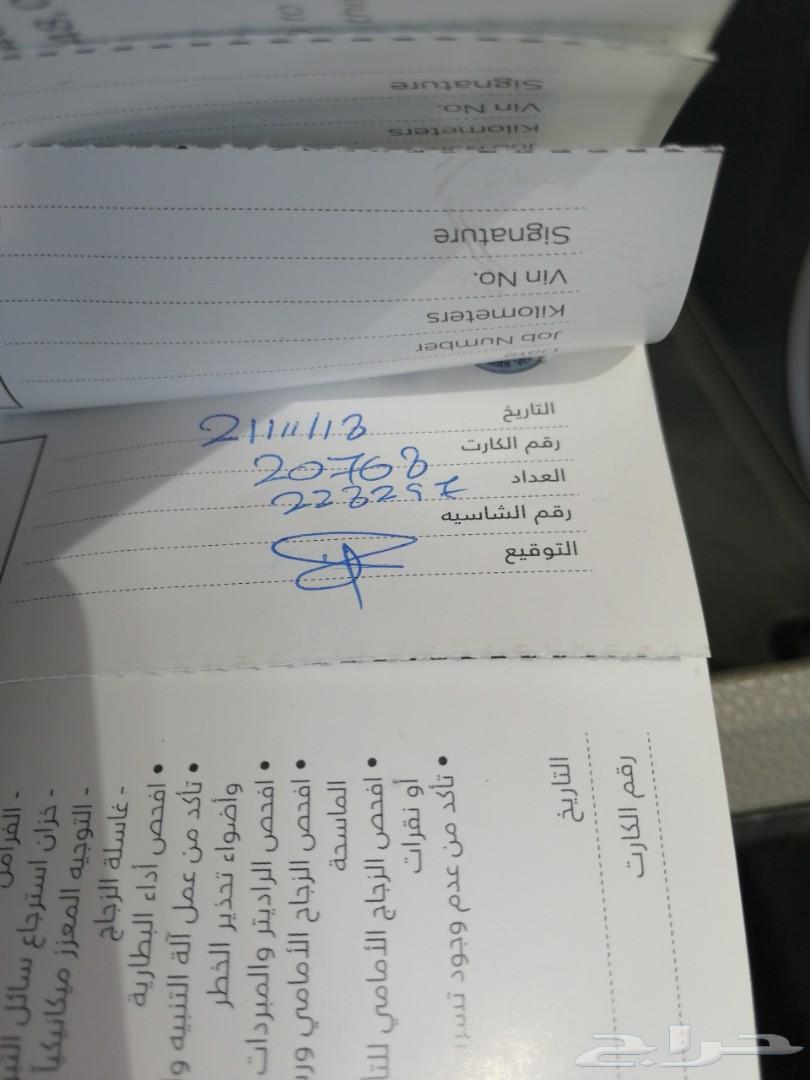 Signature
Vin No.
Kilometers
Signature
Vin No.
Kilometers
Job Number
Date
التاريخ
21/11/13
رقم الكارت
20768
العداد
223297
رقم الشاسيه
التوقيع
رقم الكارت
التاريخ
• تأكد من عدم وجود
أو نقرات
• افحص الزجاج الأمامي
الماسحة
• افحص الزجاج الأمامي
• افحص الراديتر والمبردات
وأضواء تحذير الخطر
• تأكد من عمل آلة التنبيه
• افحص أداء البطارية
- غاسلة الزجاج
- التوجيه المعزز ميكانيكياً
- خزان استرجاع سائل
- الفرامل
حراج